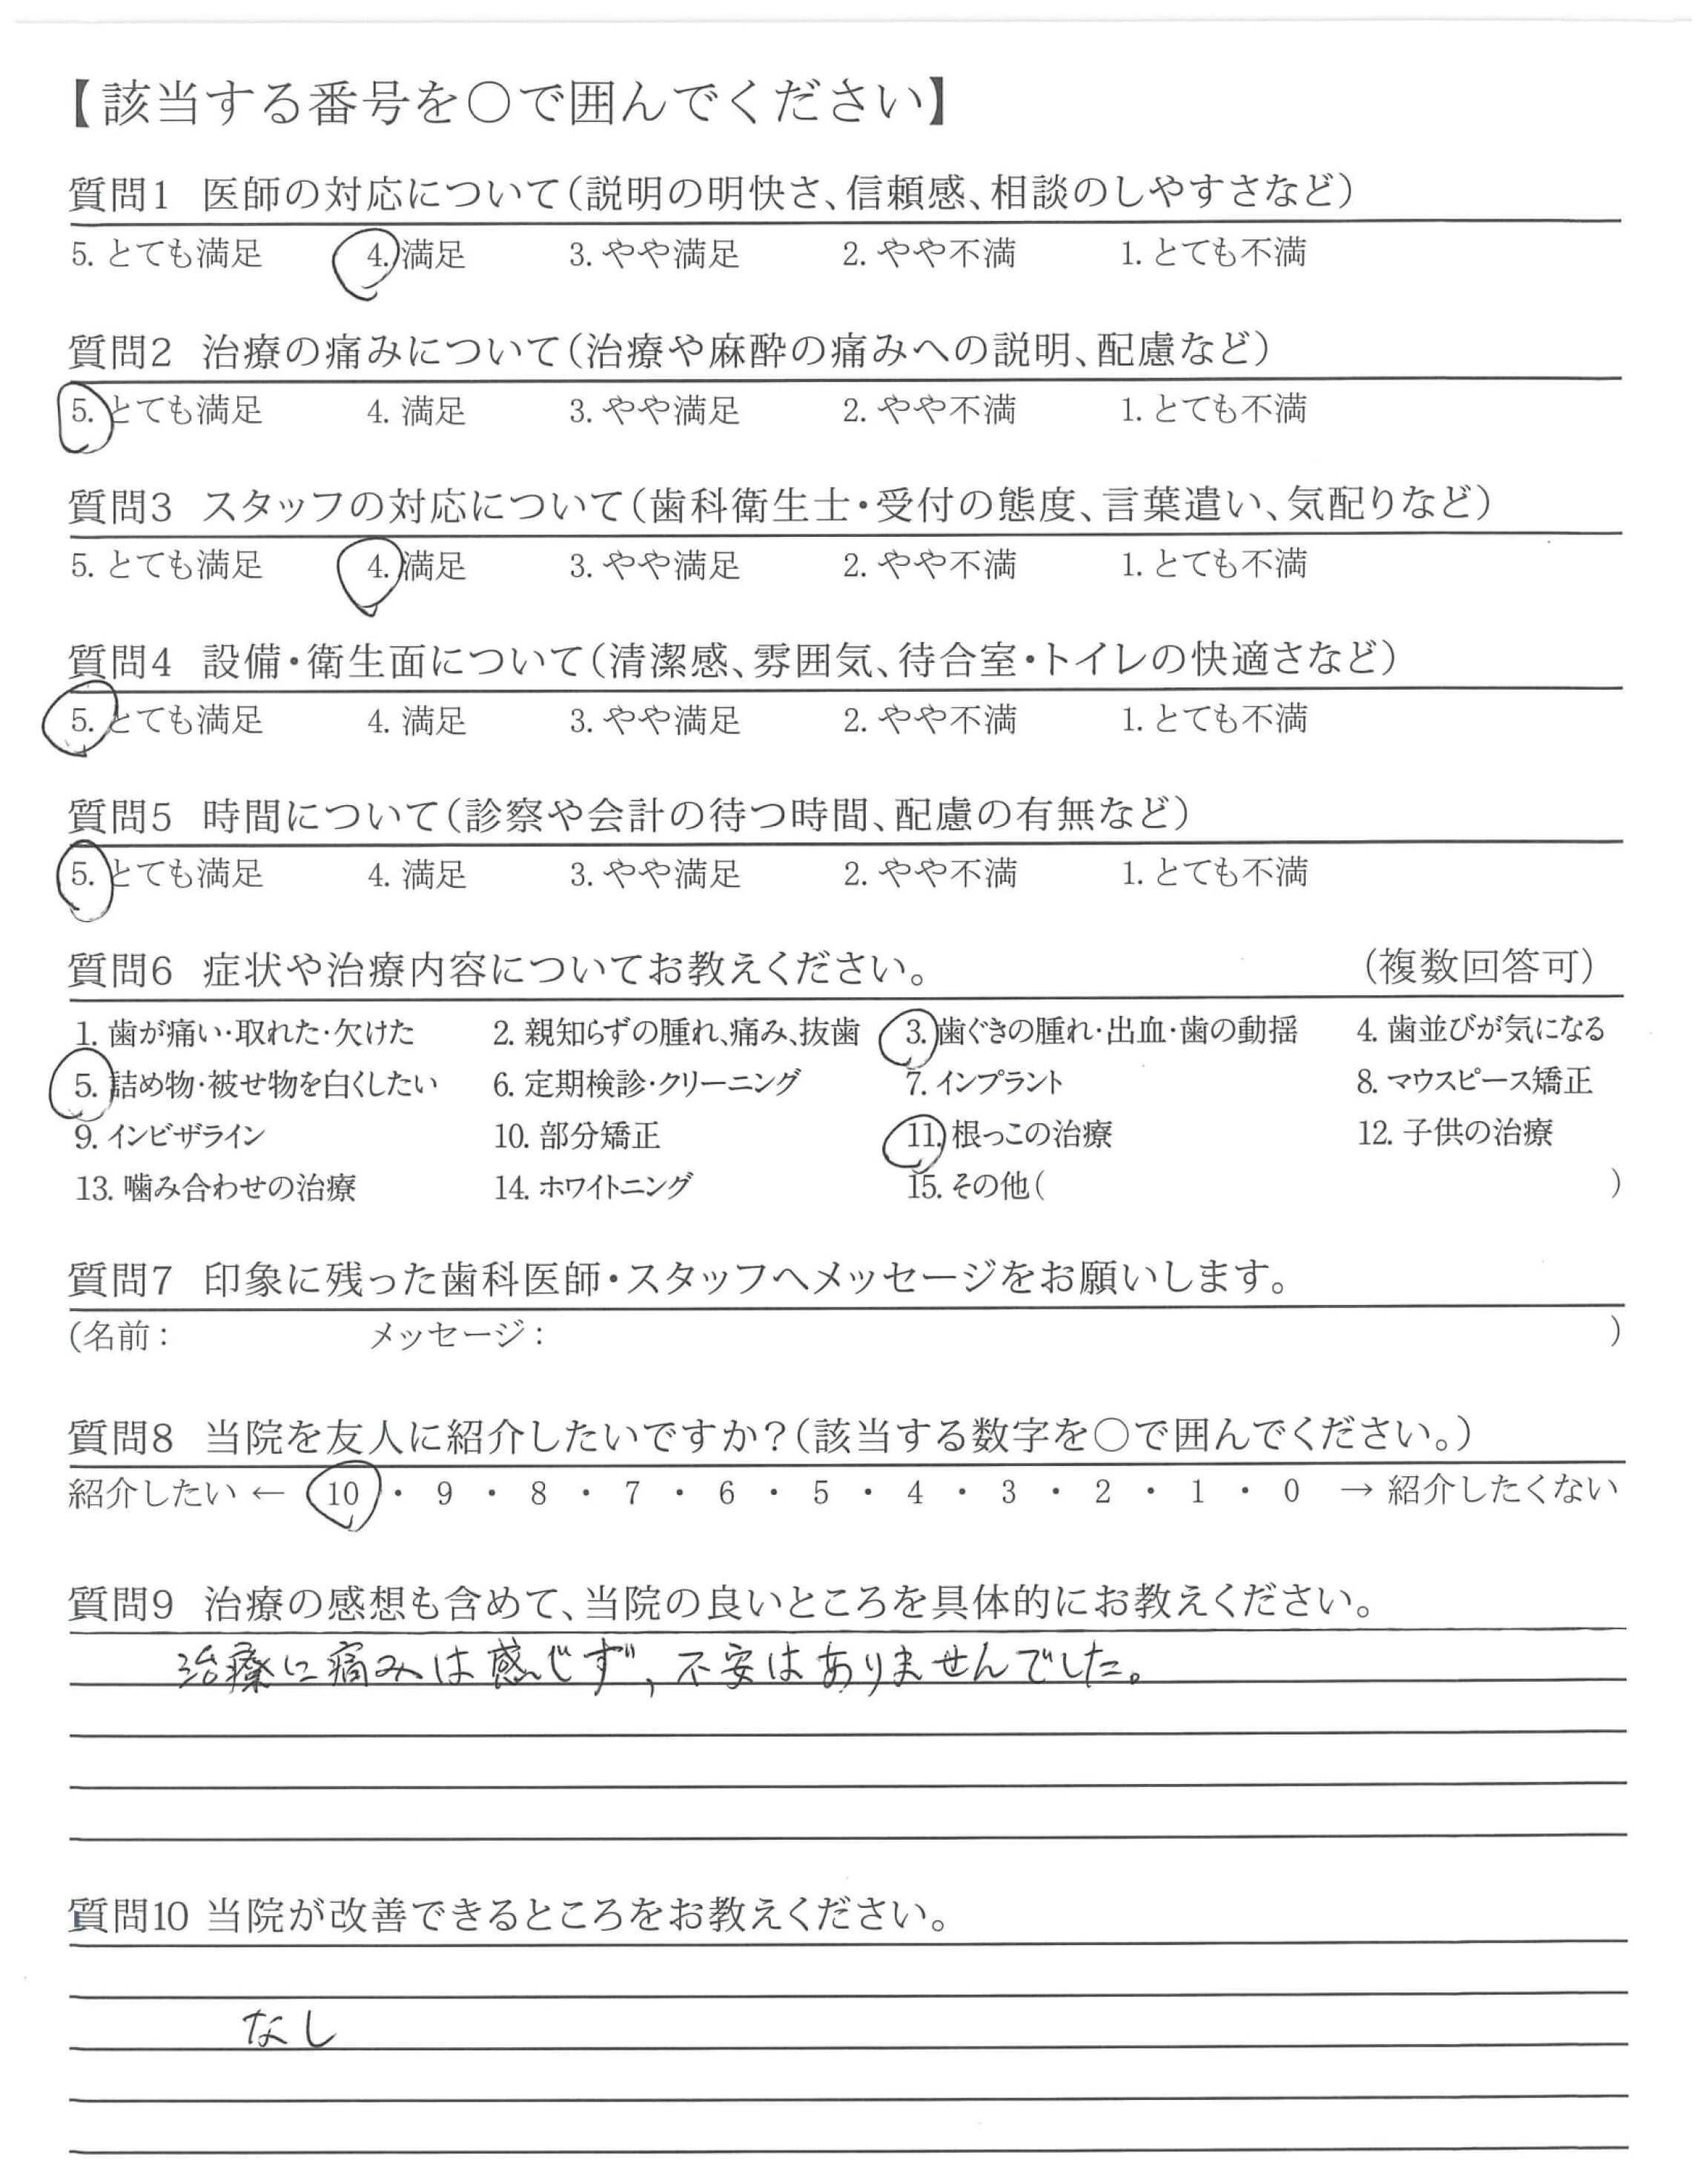 【該当する番号を〇で囲んでください】
質問1 医師の対応について(説明の明快さ、信頼感、相談のしやすさなど)
5. とても満足 4. 満足 3. やや満足 2. やや不満 1. とても不満
質問2 治療の痛みについて(治療や麻酔の痛みへの説明、配慮など)
5. とても満足 4. 満足 3. やや満足 2. やや不満 1. とても不満
質問3 スタッフの対応について(歯科衛生士・受付の態度、言葉遣い、気配りなど)
5. とても満足 4. 満足 3. やや満足 2. やや不満 1. とても不満
質問4 設備・衛生面について(清潔感、雰囲気、待合室・トイレの快適さなど)
5. とても満足 4. 満足 3. やや満足 2. やや不満 1. とても不満
質問5 時間について(診察や会計の待つ時間、配慮の有無など)
5. とても満足 4. 満足 3. やや満足 2. やや不満 1. とても不満
質問6 症状や治療内容についてお教えください。 (複数回答可)
1. 歯が痛い・取れた・欠けた 2. 親知らずの腫れ、痛み、抜歯 3. 歯ぐきの腫れ・出血・歯の動揺 4. 歯並びが気になる
5. 詰め物・被せ物を白くしたい 6. 定期検診・クリーニング 7. インプラント 8. マウスピース矯正
9. インビザライン 10. 部分矯正 11. 根っこの治療 12. 子供の治療
13. 噛み合わせの治療 14. ホワイトニング 15. その他( )
質問7 印象に残った歯科医師・スタッフへメッセージをお願いします。
(名前: メッセージ: )
質問8 当院を友人に紹介したいですか?(該当する数字を〇で囲んでください。)
紹介したい ← 10 ・ 9 ・ 8 ・ 7 ・ 6 ・ 5 ・ 4 ・ 3 ・ 2 ・ 1 ・ 0 → 紹介したくない
質問9 治療の感想も含めて、当院の良いところを具体的にお教えください。
治療に痛みは感じず、不安はありませんでした。
質問10 当院が改善できるところをお教えください。
なし